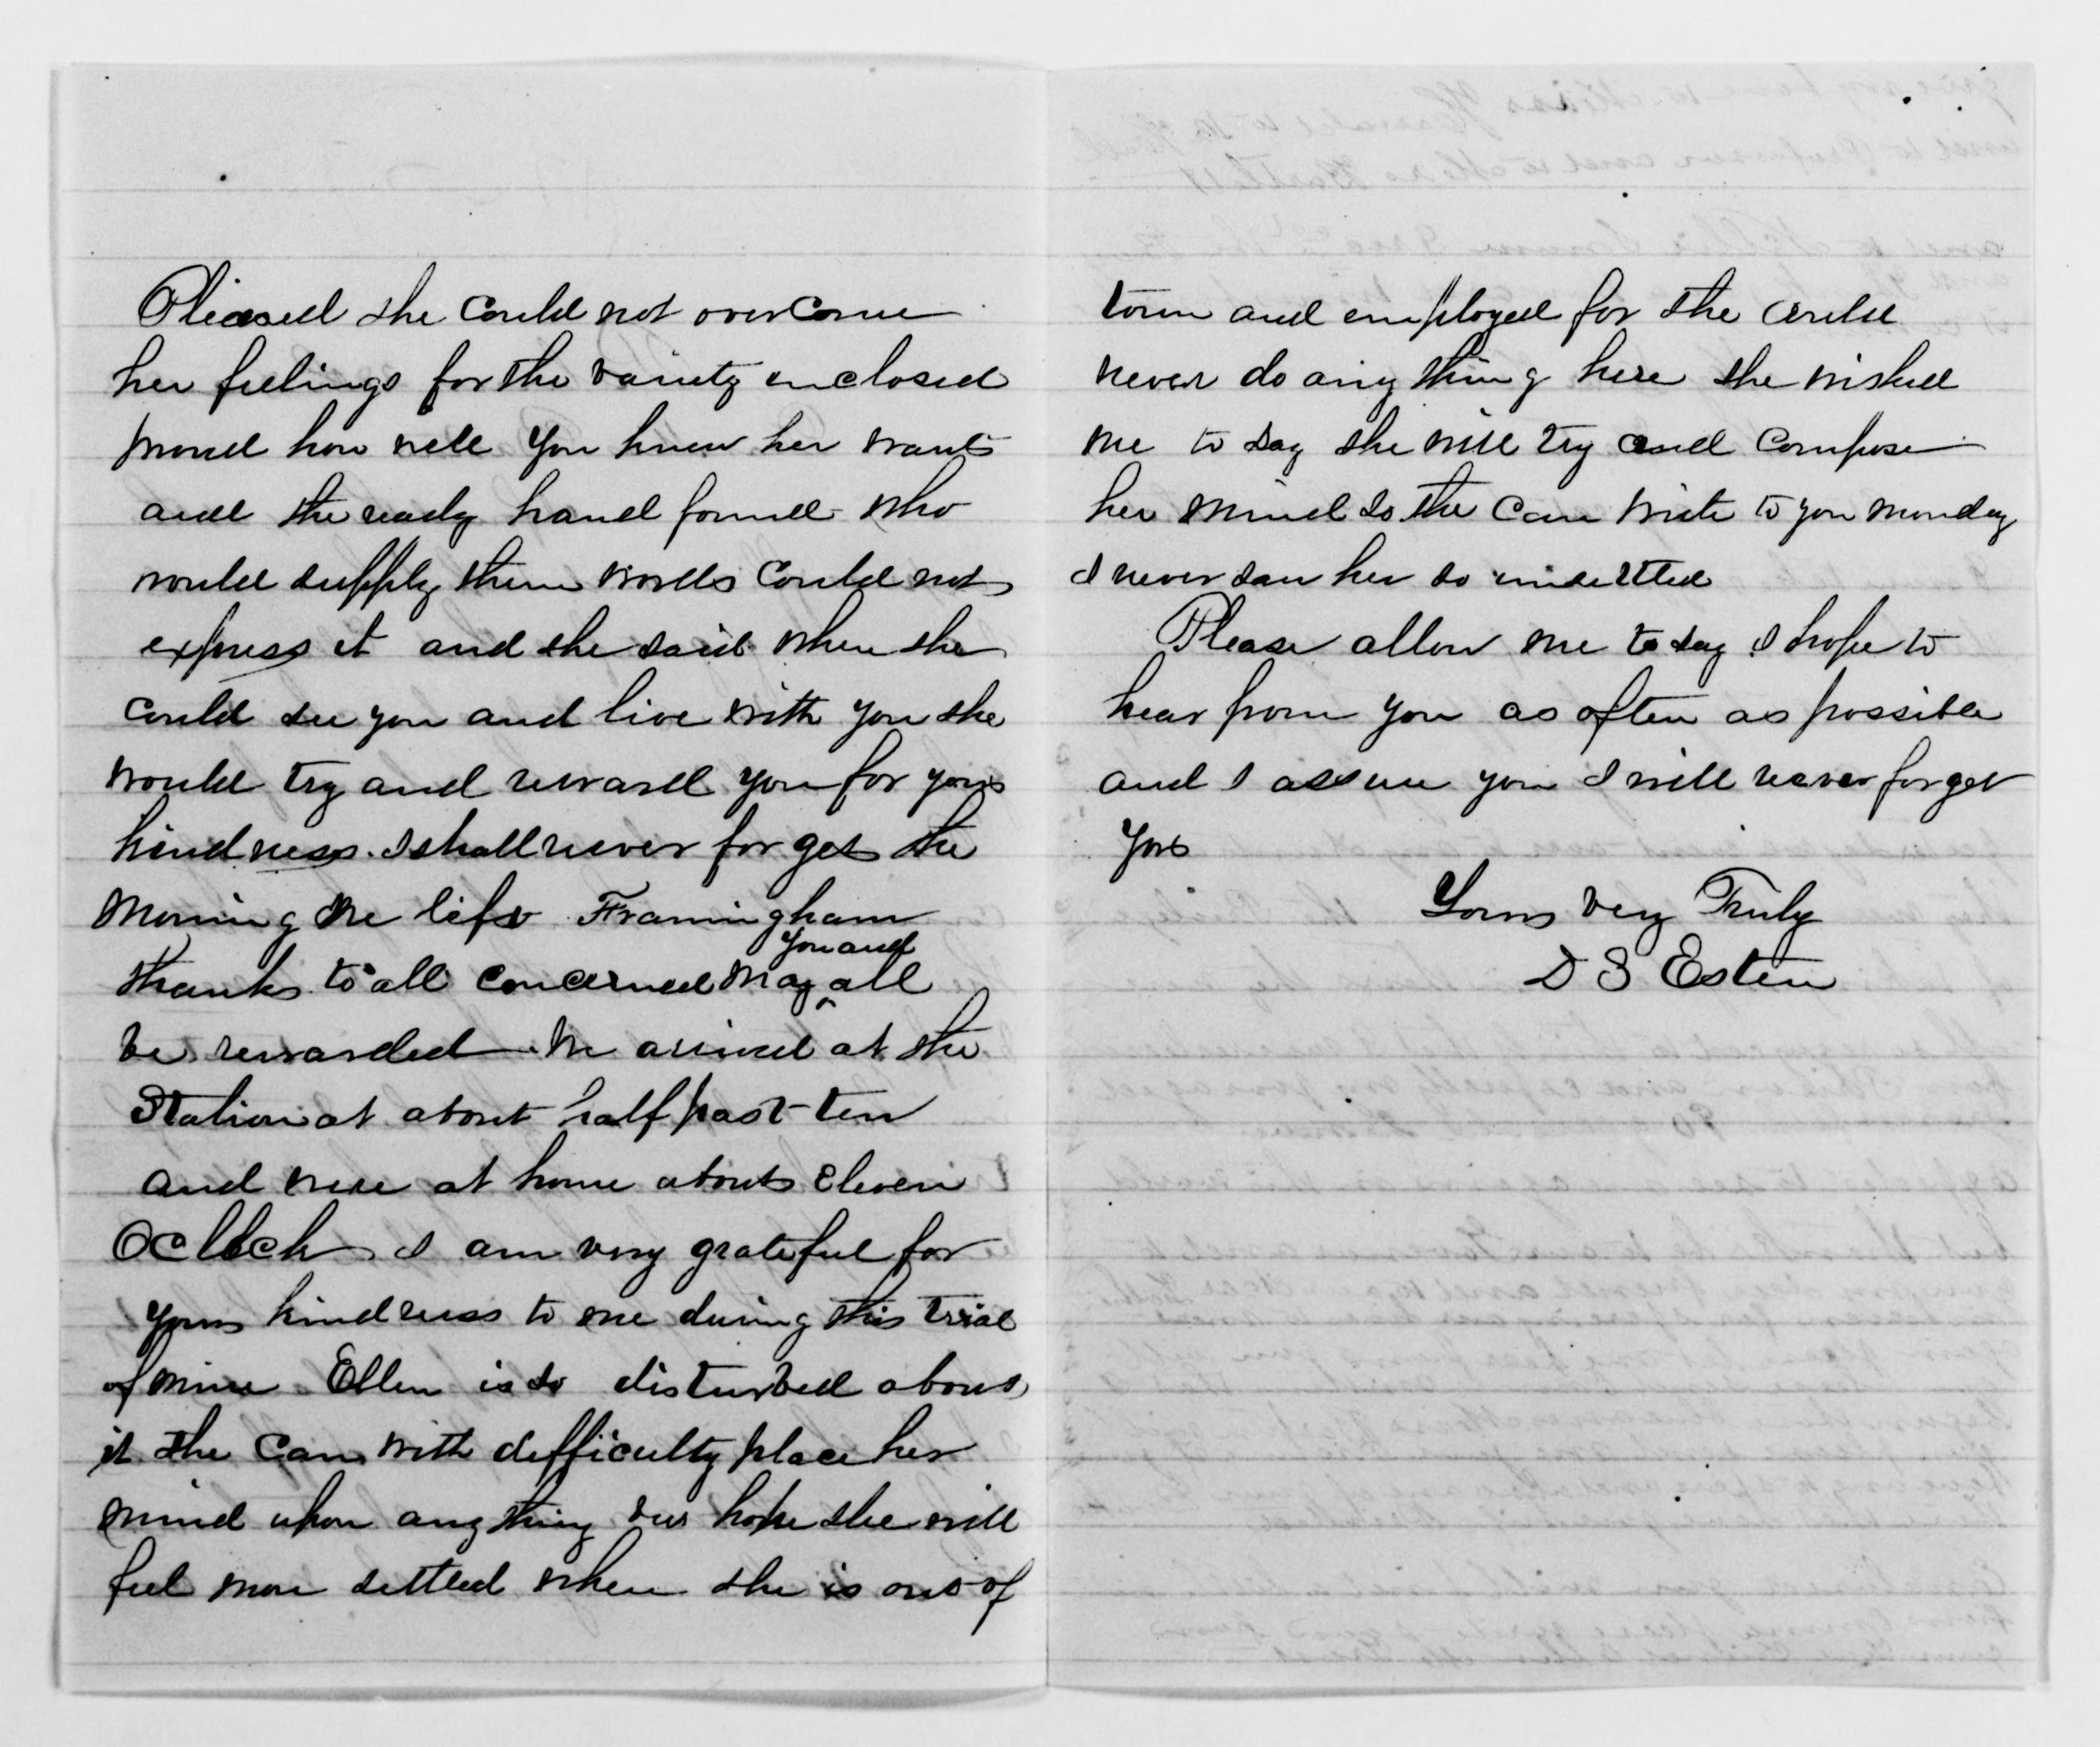 Pleased she could not overcome
her feelings for the variety enclosed
proved how well you knew her wants
and the ready hand found who
would supply them words could not
express it and she said when she
could see you and live with you she
would try and reward you for your
kindness. I shall never forget the
morning we left Framingham
you and
thanks to all concerned may all
be rewarded. We arrived at the
Station at about half past ten
and were at home about Eleven
Oclock. I am very grateful for
your kindness to me during this trial
of mine Ellen is so disturbed about
it she can with difficulty place her
mind upon any thing but hope she will
feel more settled when she is out of
town and employed for she could
never do any thing here she wished
me to say she will try and compose
her mind so she can write to you monday
I never saw her so unsettled
Please allow me to say I hope to
hear from you as often as possible
and I assure you I will never forget
you
Yours very Truly
D S Esten